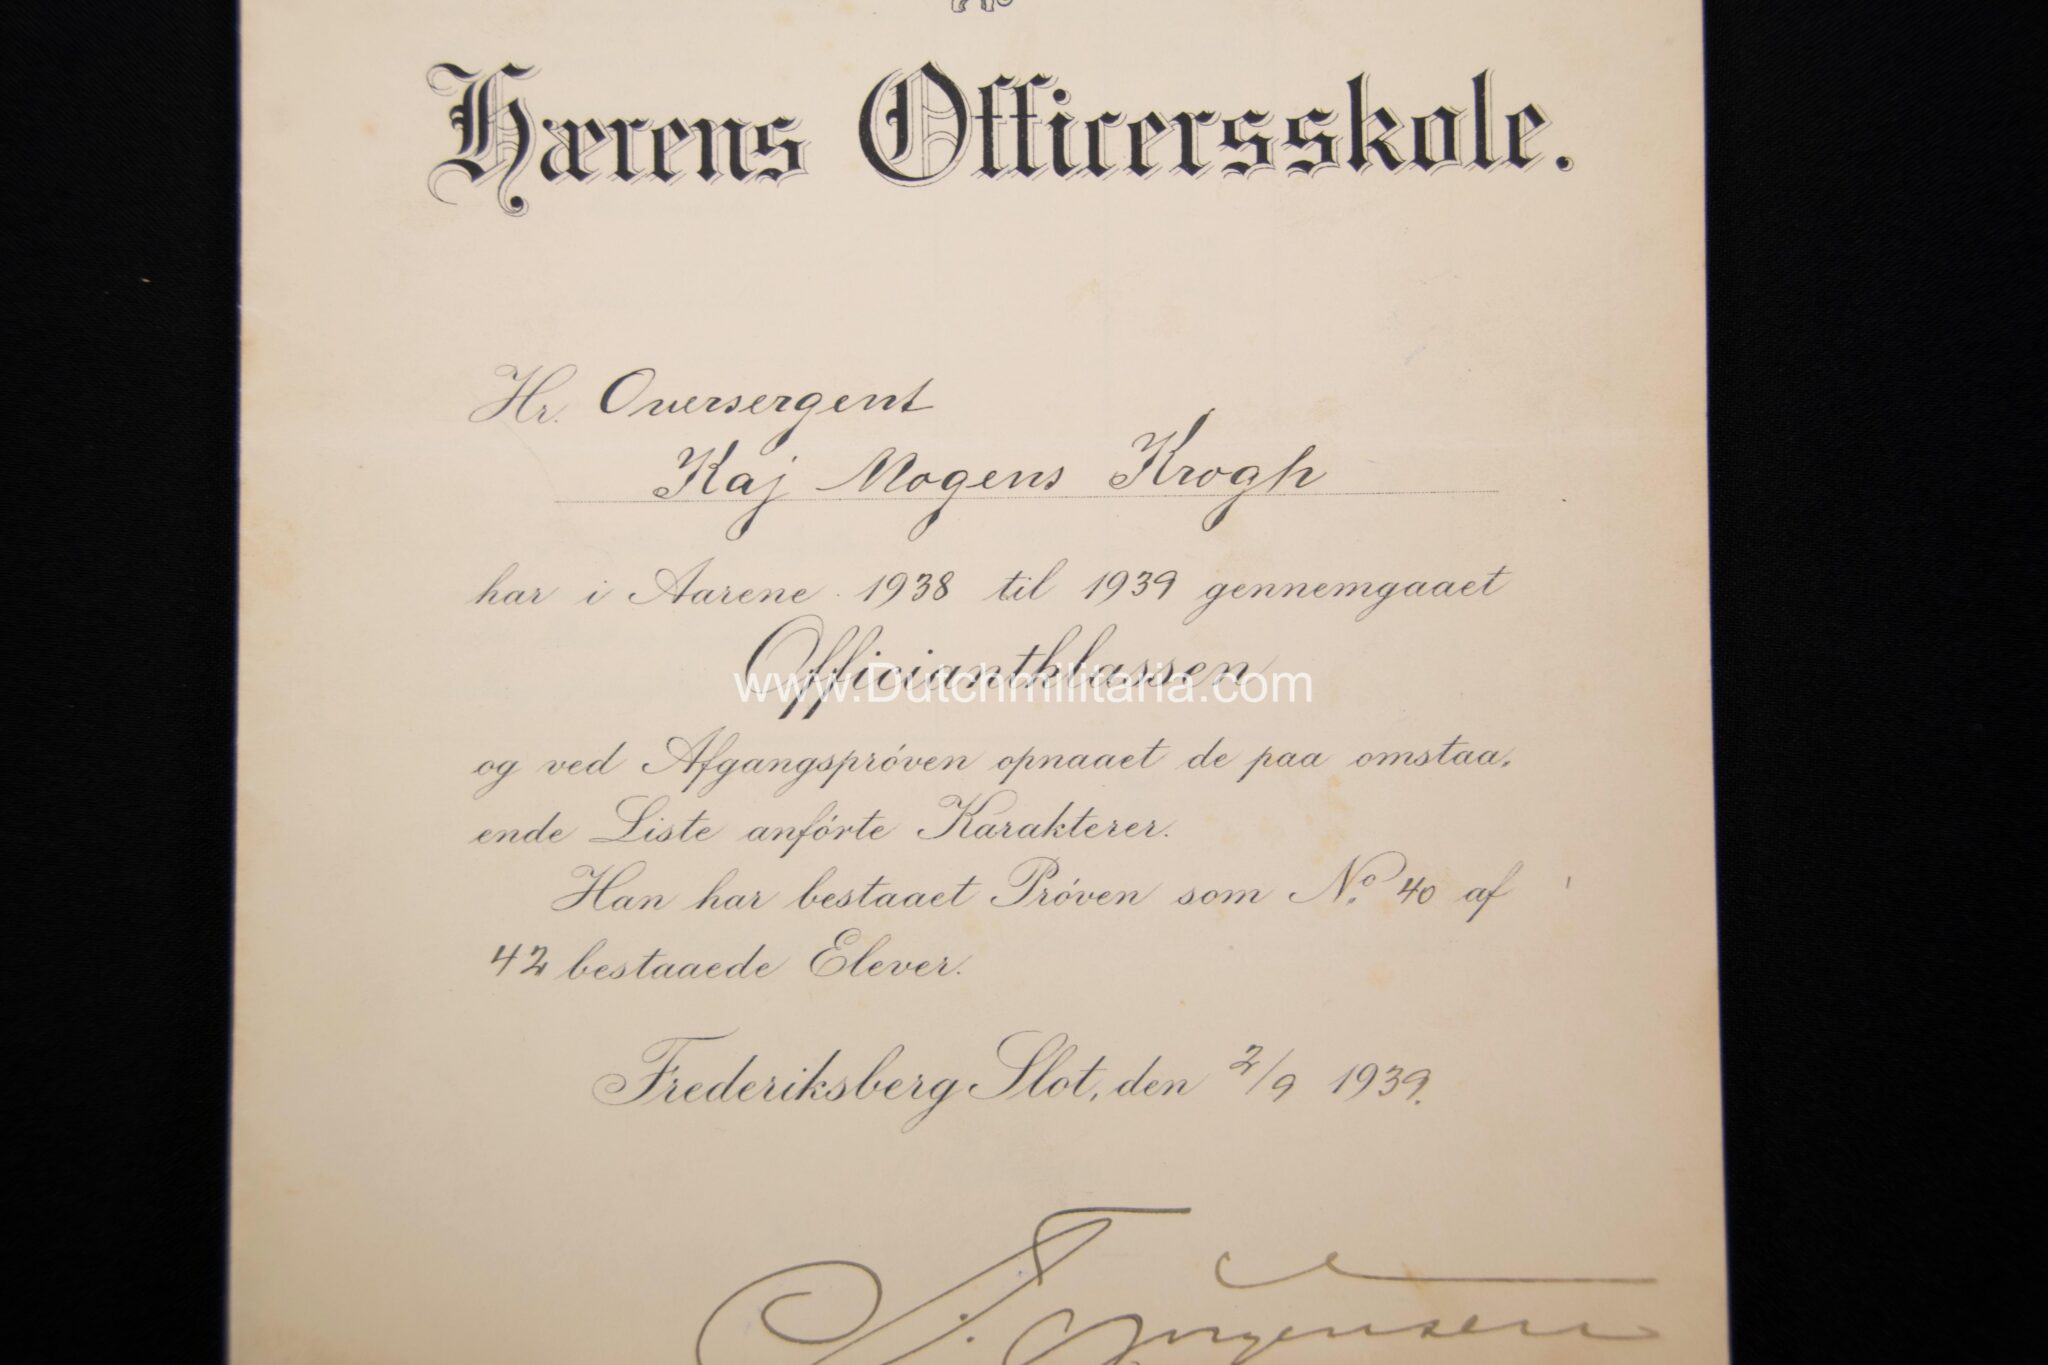 Hærens Officersskole.
Hr. Oversergent
Kaj Mogens Krogh
har i Aarene 1938 til 1939 gennemgaaet
Officiantklassen
www.Dutchmilitaria.com
og ved Afgangspróven opnaaet de paa omstaa-
ende Liste anfórte Karakterer.
Han har bestaaet Próven som No. 40 af
42 bestaaede Elever.
Frederiksberg Slot, den 2/9 1939.
Jørgensen